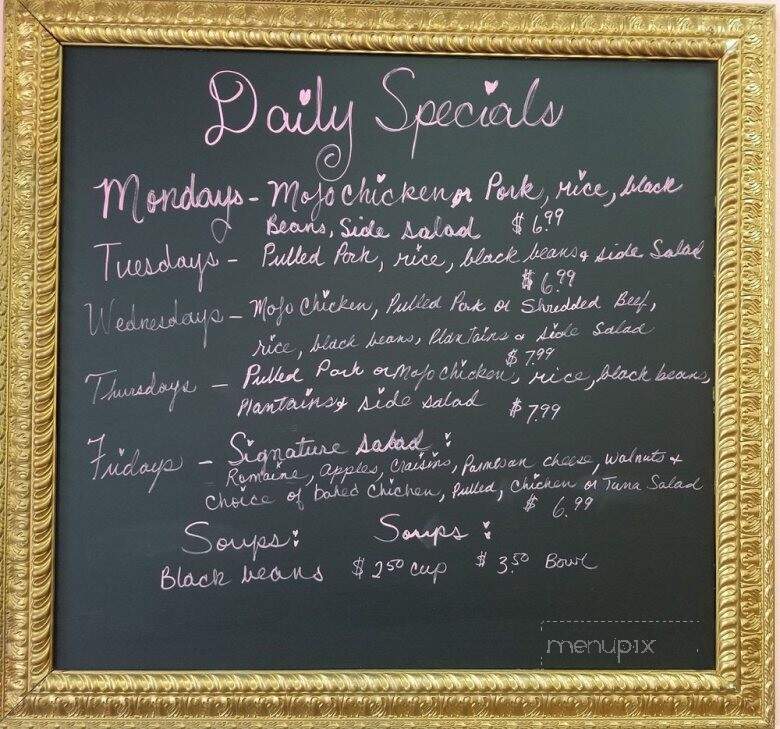 Daily Specials
Mondays - Mojo chicken or Pork, rice, black
Beans, Side salad $6.99
Tuesdays - Pulled Pork, rice, black beans & side Salad
$6.99
Wednesdays - Mojo chicken, Pulled Pork or Shredded Beef,
rice, black beans, Plantains & side Salad
$7.99
Thursdays - Pulled Pork or Mojo chicken, rice, black beans,
Plantains & side salad $7.99
Fridays - Signature salad:
Romaine, apples, Craisins, Parmesan cheese, walnuts &
choice of baked chicken, Pulled, chicken or Tuna Salad
$6.99
Soups: Soups:
Black beans $2.50 cup $3.50 Bowl
menupix